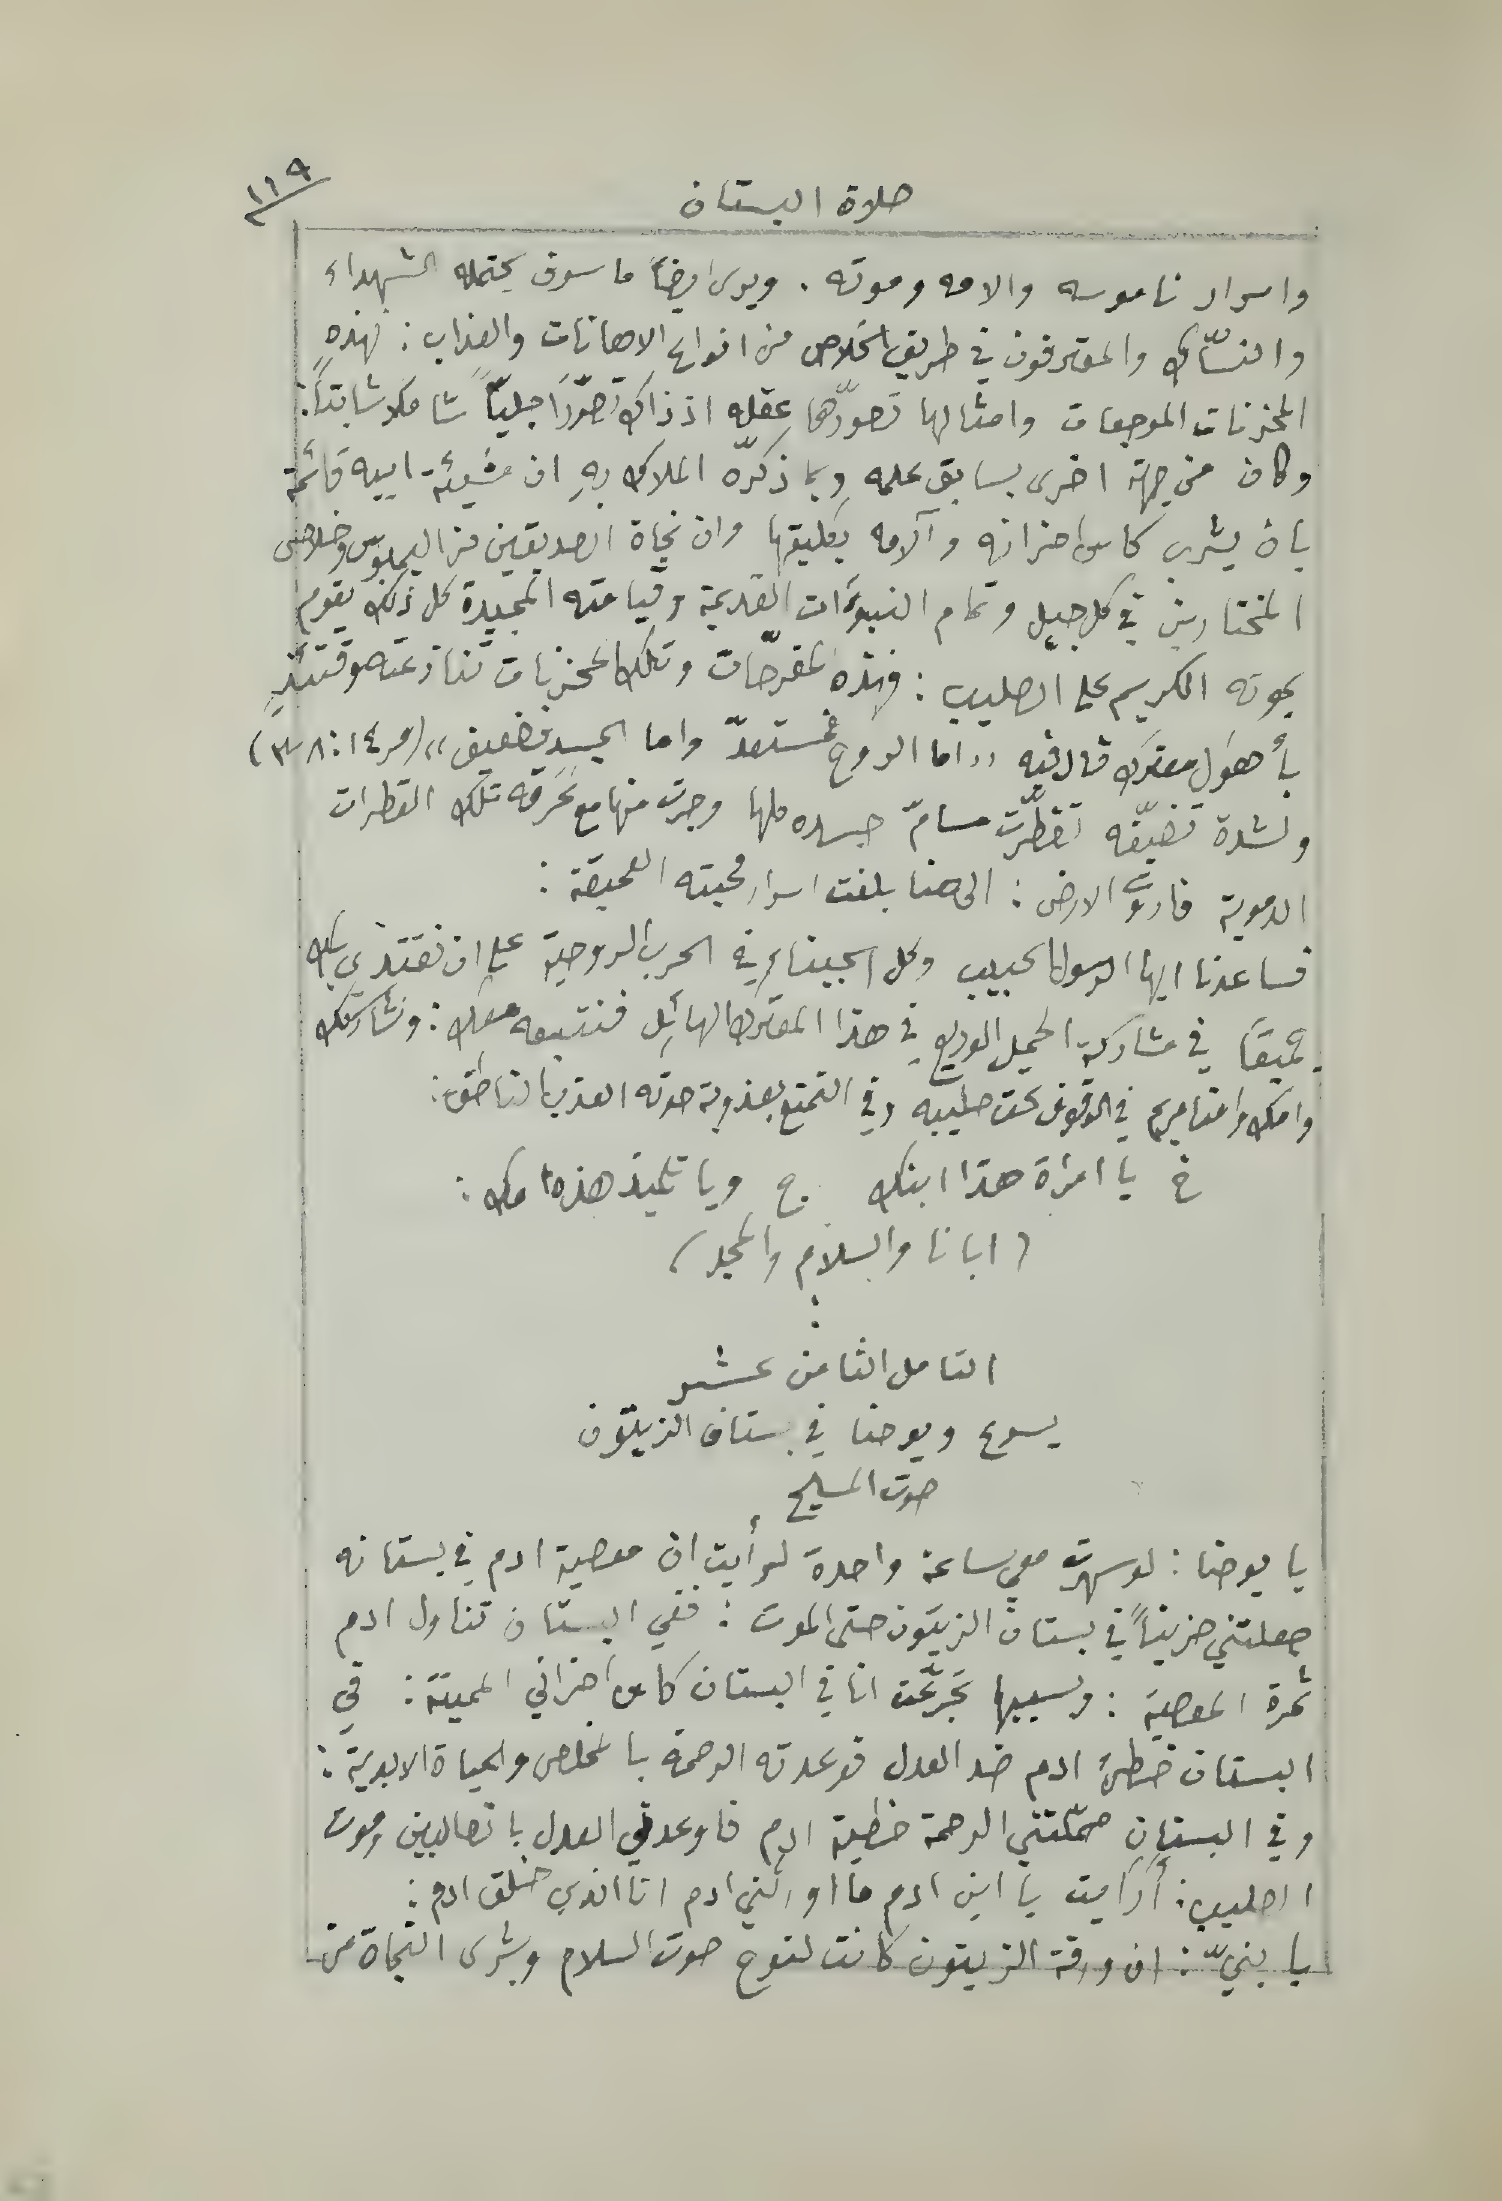 ١١٩
صلاة البستان
واسرار ناموسه والامه وموته . ويرى ايضاً ما سوف يحتمله الشهداء
والنسّاك والمعترفون في طريق الخلاص من انواع الاهانات والعذاب : فهذهِ
المحزنات الموجعات وامثالها تصوّرها عقله اذ ذاك تصوّراً جليّاً شاملاً ثابتاً :
وكان من جهة اخرى بسابق علمه وبما ذكرّه الملاك بهِ ان مشيئة ابيه قائمة
بان يشرب كاس احزانه وآلامه بكليتها وان نجاة الصديقين من اليمبوس وخلاص
المختارين في كل جيل وتمام النبوءَات القديمة وقيامته المجيدة كل ذلك يقوم
بموته الكريم على الصليب : فهذه المفرحّات وتلك المحزنات تنازعته وقتئذٍ
بأهوَل معترك قال فيه ,, اما الروح فمستعدّ واما الجسد فضعيف ,, (مر ١٤ : ٣٨)
ولشدة تضيّقه تفطّرت مسامّ جسده كلها وجرت منها مع عَرَقه تلك القطرات
الدموية فاروَت الارض : الى هنا بلغت اسرار محبته العميقة :
فساعدنا ايها الرسول الحبيب وكل اسجينا في الحرب الروحية على ان نقتدي بك
عميقاً في مشاركة الحمل الوديع في هذا المعترك الهائِل فنتبعه معك : ونشاركك
وامك وامنا مريم في الوقوف تحت صليبه وفي التمتع بعذوبة صوته العذب الناطق :
خ يا امرأة هذا ابنك ج ويا تلميذ هذه امك :
( ابانا والسلام والمجد )
التامل الثامن عشر
يسوع ويوحنا في بستان الزيتون
صوت المسيح
يا يوحنا : لو سهرت معي ساعة واحدة لرأيت ان معصية ادم في بستانه
جعلتني حزيناً في بستان الزيتون حتى الموت : ففي البستان تناول ادم
ثمرة المعصية : وبسببها تجرّعت انا في البستان كاس احزاني المميتة : في
البستان خطئَ ادم ضد العدل فوعدته الرحمة بالمخلص والحياة الابدية :
وفي البستان حمّلتني الرحمة خطية ادم فاوعدني العدل باتعابي وموت
الصليب : أرَأَيت يا ابن ادم ما اورثني ادم انا الذي خلق ادم :
يا بنيّ : ان ورقة الزيتون كانت لنوح صوت السلام وبشرى النجاة من